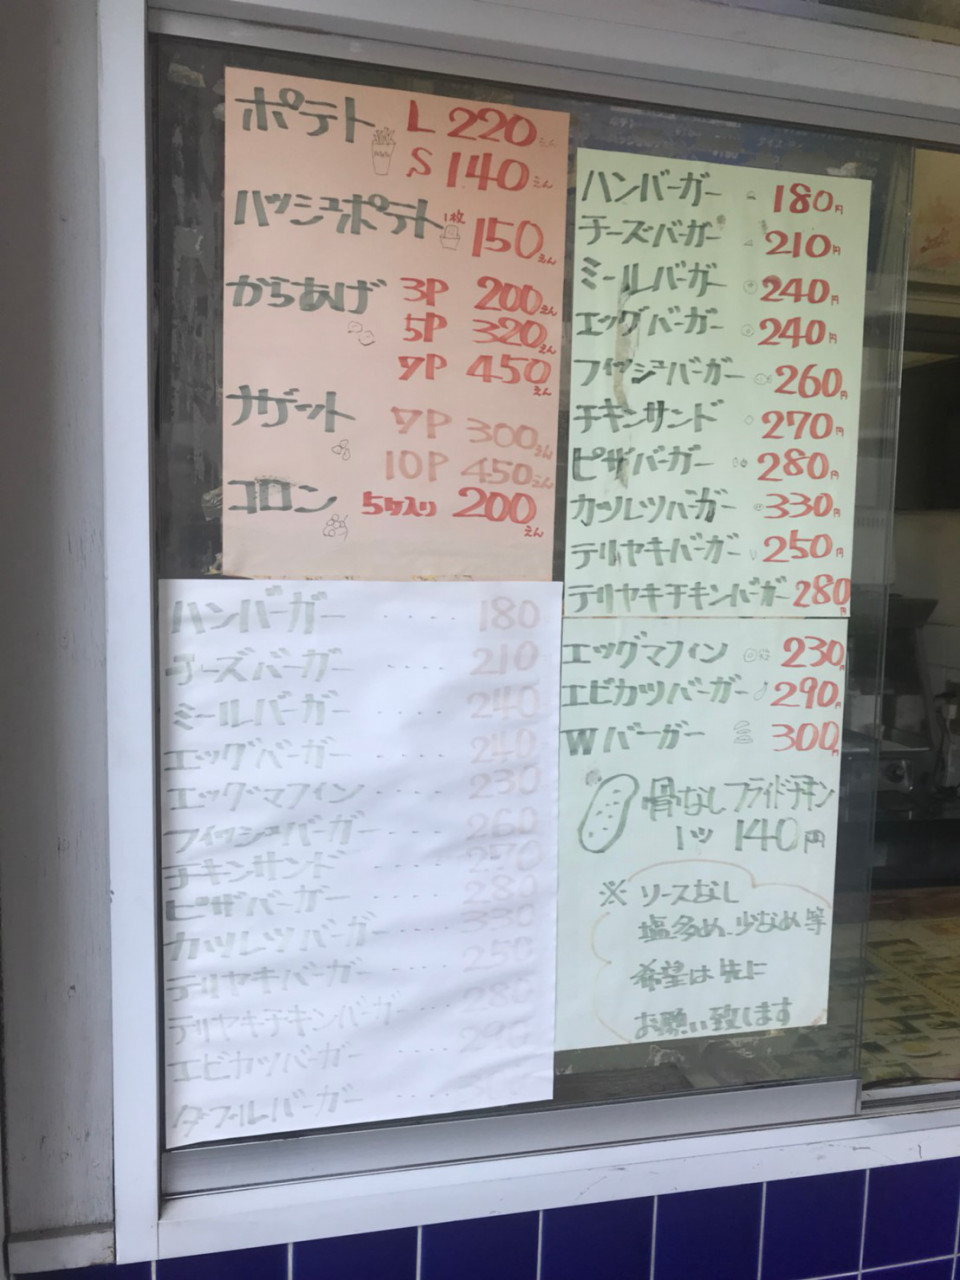 ポテト L 220えん
S 140えん
ハッシュポテト 1枚 150えん
からあげ 3P 200えん
5P 320えん
7P 450えん
ナゲット 7P 300えん
10P 450えん
コロン 5ケ入り 200えん
ハンバーガー 180円
チーズバーガー 210円
ミールバーガー 240円
エッグバーガー 240円
フィッシュバーガー 260円
チキンサンド 270円
ピザバーガー 280円
カツレツバーガー 330円
テリヤキバーガー 250円
テリヤキチキンバーガー 280円
エッグマフィン 230円
エビカツバーガー 290円
Wバーガー 300円
骨なしフライドチキン
1ツ 140円
※ ソースなし
塩多め、少なめ等
希望は先に
お願い致します
ハンバーガー ‥‥ 180
チーズバーガー ‥‥ 210
ミールバーガー ‥‥ 240
エッグバーガー ‥‥ 240
エッグマフィン ‥‥ 230
フィッシュバーガー ‥‥ 260
チキンサンド ‥‥ 270
ピザバーガー ‥‥ 280
カツレツバーガー ‥‥ 330
テリヤキバーガー ‥‥ 250
テリヤキチキンバーガー ‥‥ 280
エビカツバーガー ‥‥ 290
ダブルバーガー ‥‥